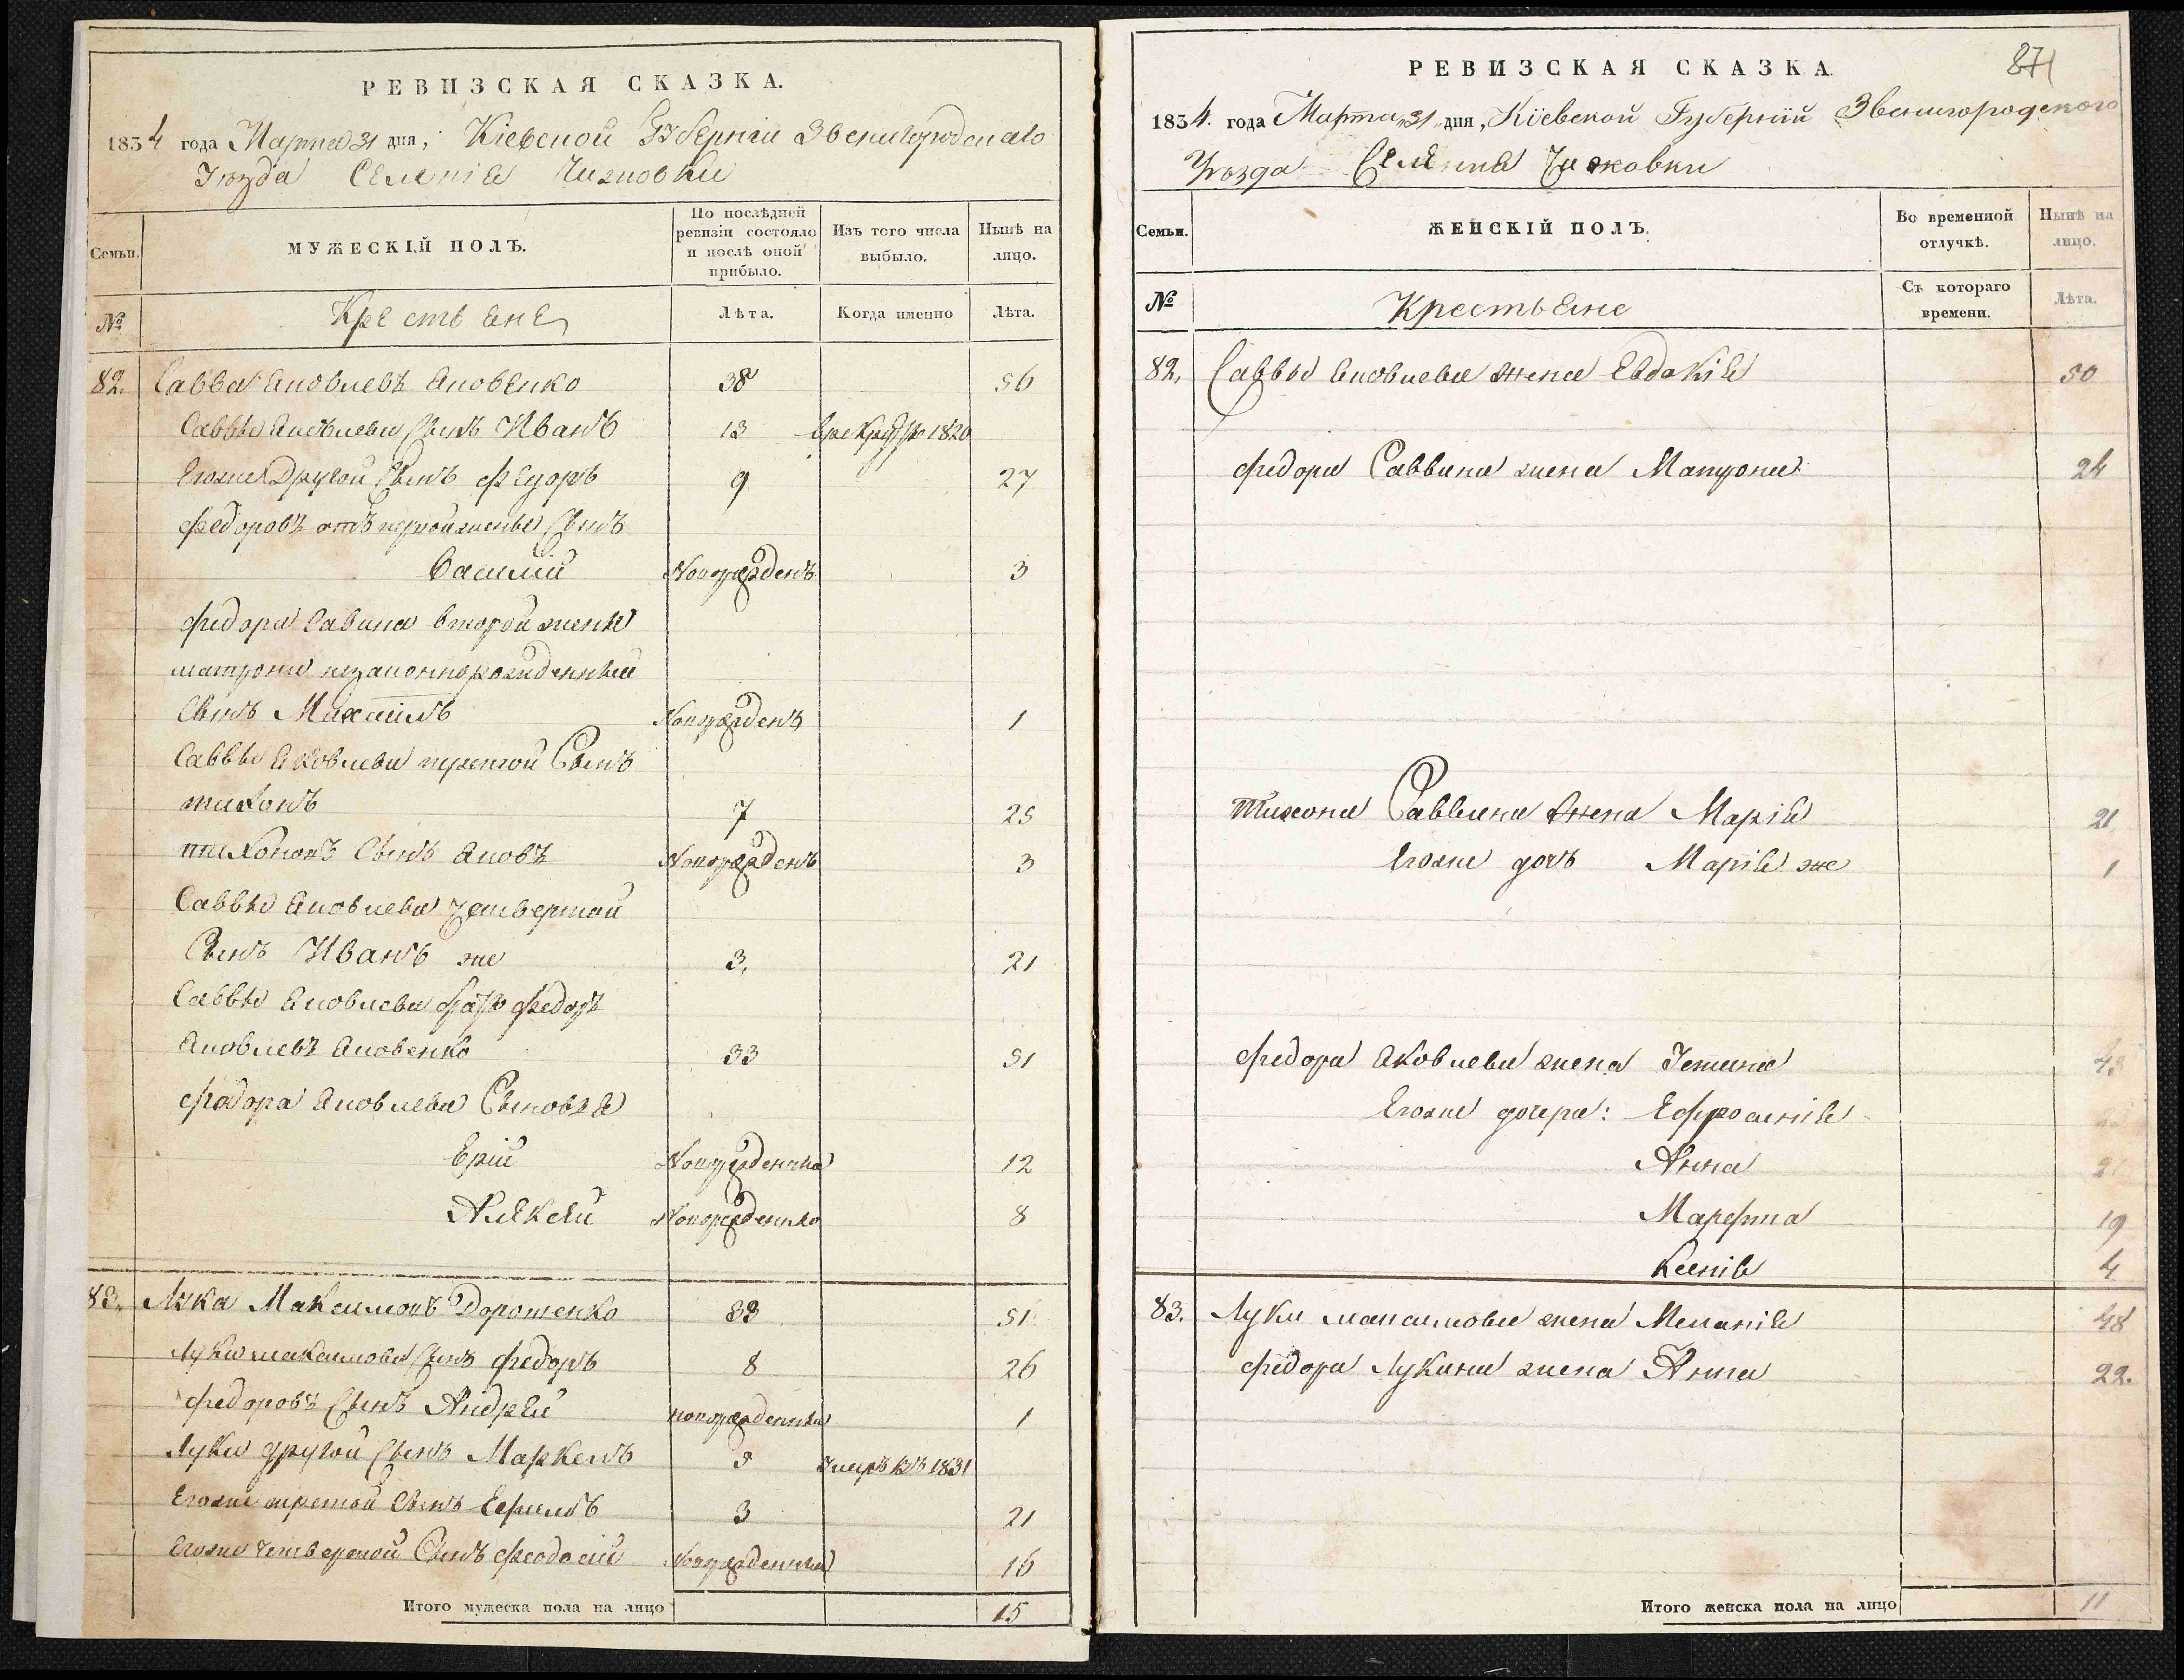 РЕВИЗСКАЯ СКАЗКА.
1834 года Марта 31 дня, Кіевской Губерніи Звенигородскаго
Уѣзда Селенія Чижовки
Семьи.
МУЖЕСКІЙ ПОЛЪ.
По послѣдней ревизіи состояло и послѣ оной прибыло.
Изъ того числа выбыло.
Нынѣ на лицо.
№
Крестьяне
Лѣта.
Когда именно
Лѣта.
82. Савва Яковлевъ Яковенко 38 56
Саввы Яковлева Сынъ Иванъ 13 врекруты 1820
Егоже другой Сынъ Федоръ 9 27
Федоровъ отъ первой жены Сынъ
Василий Новорожденъ 3
Федора Савина второй жены
матроны незаконнорожденный
Сынъ Михаилъ Новорожденъ 1
Саввы Яковлева третой Сынъ
тихонъ 7 25
тихоновъ Сынъ Яковъ Новорожденъ 3
Саввы Яковлева Четвертой
Сынъ Иванъ же 3. 21
Саввы Яковлева братъ Федоръ
Яковлевъ Яковенко 33 51
Федора Яковлева Сыновья
Ерій 12
Алексей 8
83. Лука Максимовъ Дорошенко 33 51
Луки максимова Сынъ Федоръ 8 26
Федоровъ Сынъ Андрей 1
Луки другой Сынъ Маркелъ 5 Умеръ въ 1831
Егоже третой Сынъ Ефимъ 3 21
Егоже Четвертой Сынъ Феодосій 16
Итого мужеска пола на лицо 15
871
РЕВИЗСКАЯ СКАЗКА.
1834. года Марта 31 дня, Кіевской Губерніи Звенигородского
Уѣзда Селения Чижовки
Семьи.
ЖЕНСКІЙ ПОЛЪ.
Во временной отлучкѣ.
Нынѣ на лицо.
№
Крестьяне
Съ котораго времени.
Лѣта.
82. Саввы Яковлева жена Евдокія 50
Федора Саввина жена Матрона 24
Тихона Саввина жена Марія 21
Егоже дочь Марія же 1
Федора Яковлева жена
Егоже дочери: Ефросинія
Анна
Марфта 19
Ксенія 4
83. Луки максимова жена Меланія 48
Федора Лукина жена Анна 22.
Итого женска пола на лицо 11